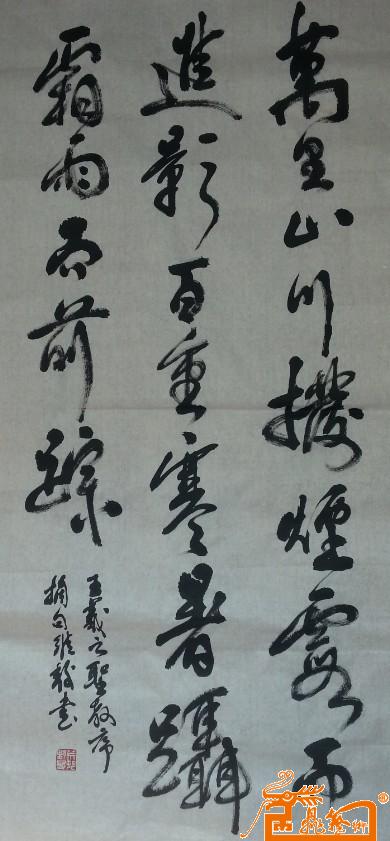 萬里山川撥煙霞而
進影百重寒暑躡
霜雨而前蹤
王羲之聖教序
摘句